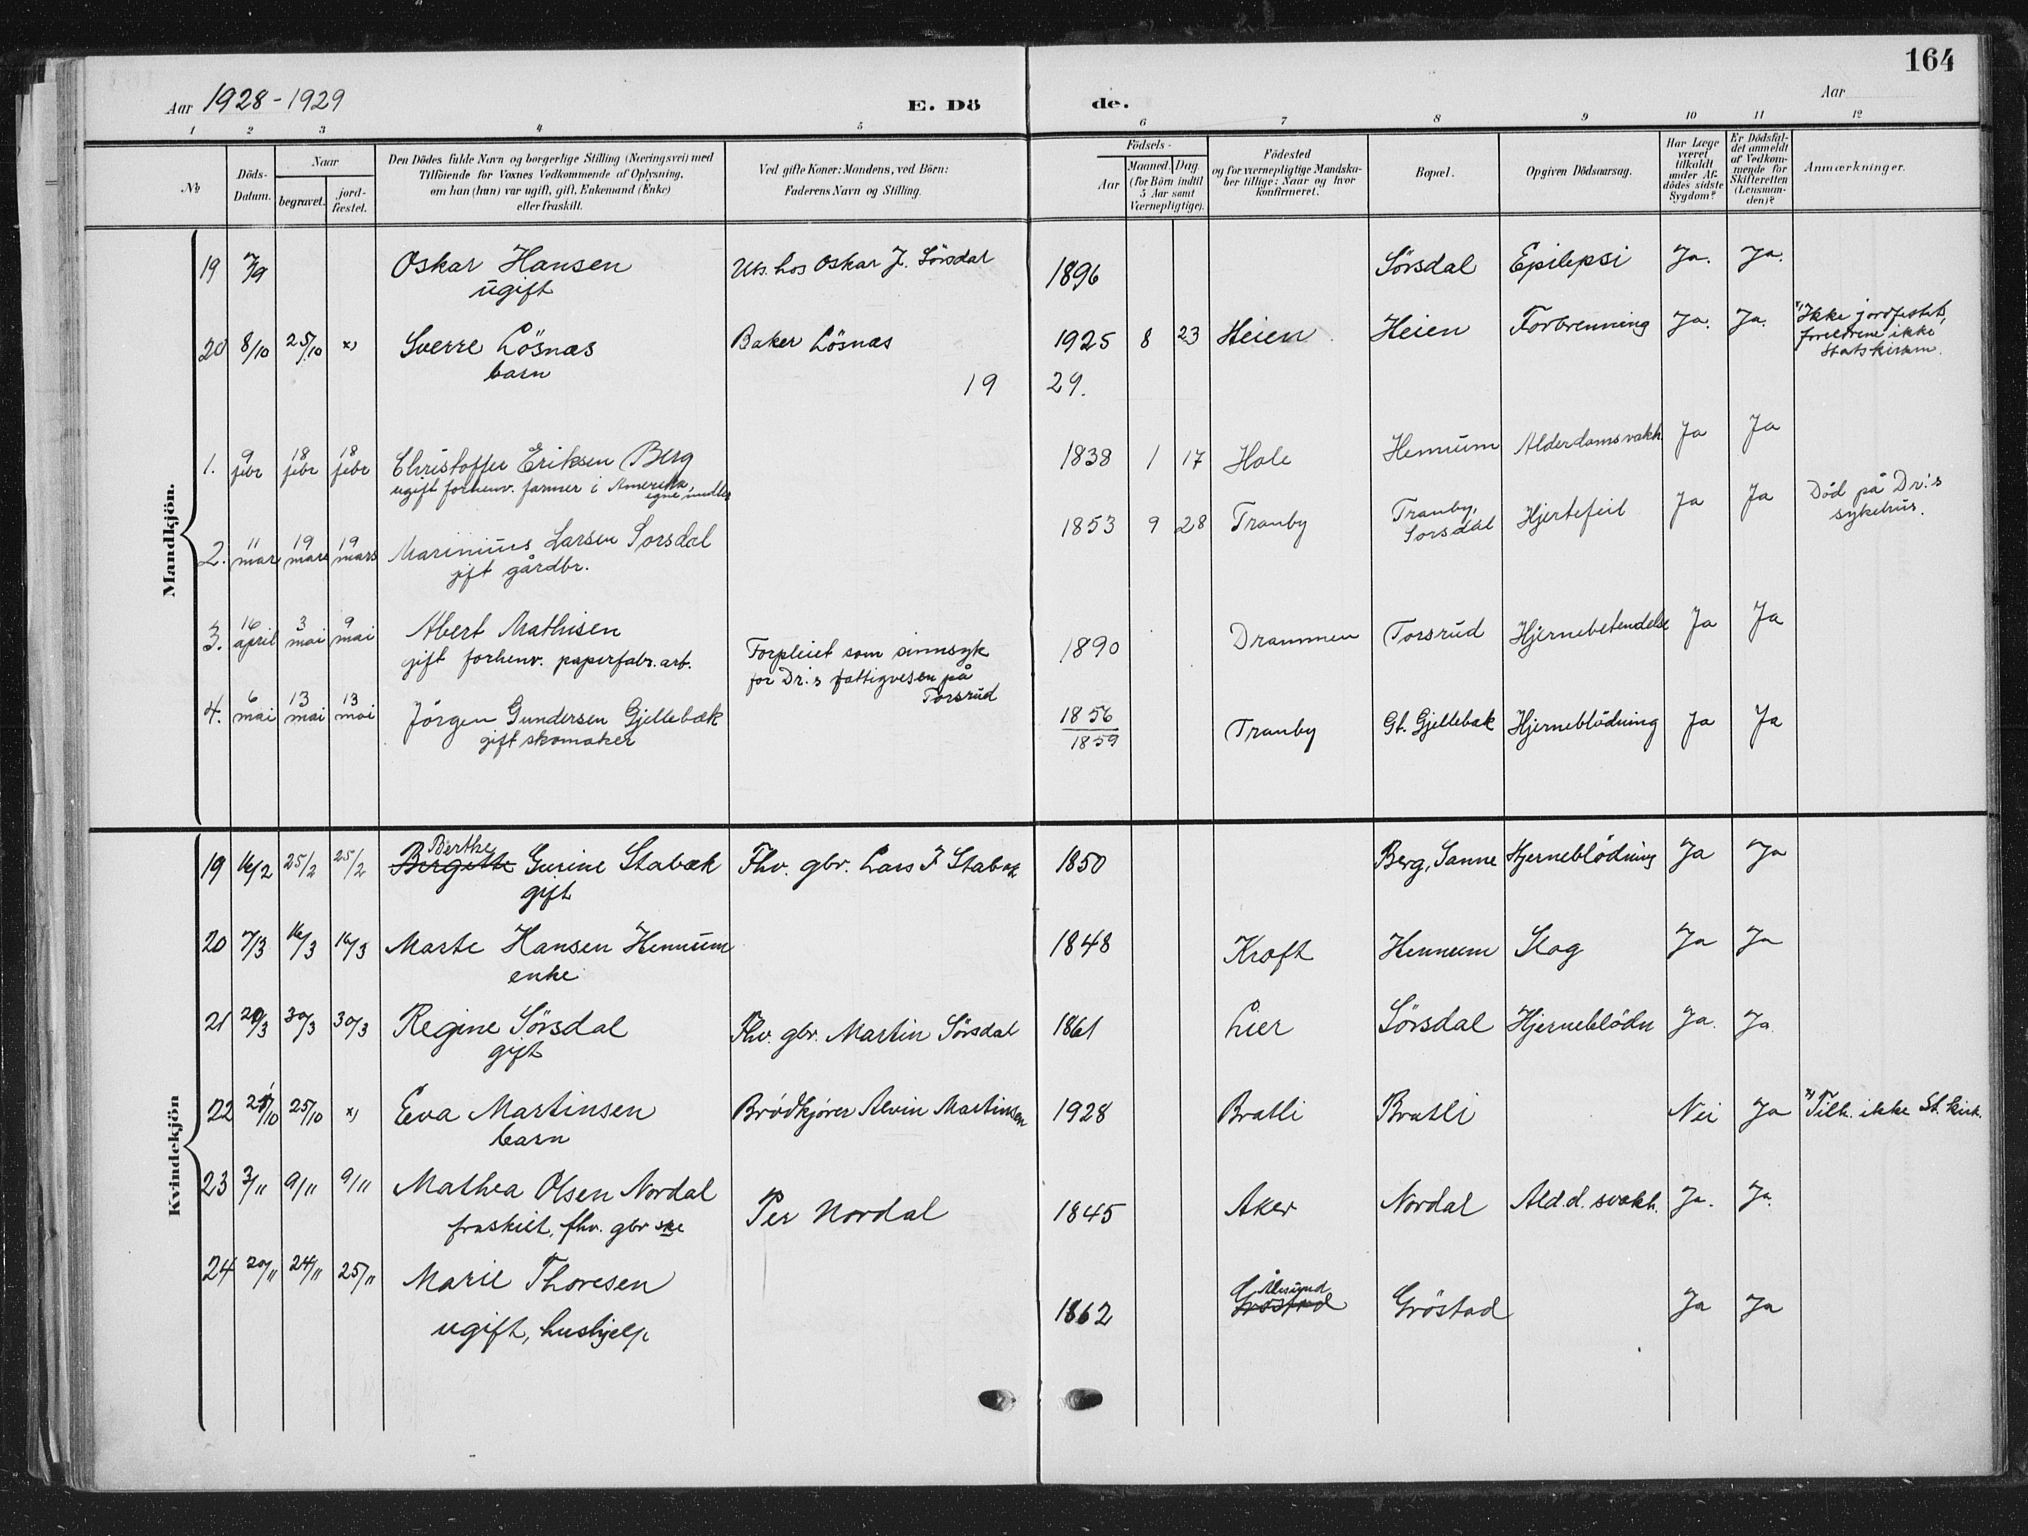 164
Aar 1928-1929
E. Dö
de.
Aar
1 2 3 4 5 6 7 8 9 10 11 12
No
Döds-
Datum.
Naar
begravet.
jord-
fæstet.
Den Dödes fulde Navn og borgerlige Stilling (Næringsvei) med
Tilföiende for Voxnes Vedkommende af Oplysning,
om han (hun) var ugift, gift, Enkemand (Enke)
eller fraskilt.
Ved gifte Koner: Mandens, ved Börn:
Faderens Navn og Stilling.
Födsels-
Aar
Maaned.
Dag
(for Börn indtil
5 Aar samt
Værnepligtige).
Födested
og for værnepligtige Mandska-
ber tillige: Naar og hvor
konfirmeret.
Bopæl.
Opgiven Dödsaarsag.
Har Læge
været
tilkaldt
under Af-
dödes sidste
Sygdom?
Er Dödsfal-
det anmeldt
af Vedkom-
mende for
Skifteretten
(Lensman-
den)?
Anmærkninger.
Mandkjön.
19 7/9 Oskar Hansen Uts. hos Oskar J. Sörsdal 1896 Sörsdal Epilepsi Ja. Ja.
ugift
20 8/10 25/10 x) Sverre Lösnæs Baker Lösnæs 1925 8 23 Heien Heien Forbrenning Ja. Ja. x) Ikke jordfestet,
barn foreldrene ikke
Statskirken.
19 29.
1. 9 febr 18 febr 18 febr Christoffer Eriksen Berg 1838 1 17 Hole Hennum Alderdomsvakh. Ja Ja
ugift forhenv. farmer i Amerika,
egne midler
2. 11 mar 19 mars 19 mars Marinius Larsen Sorsdal 1853 9 28 Tranby Tranby, Sorsdal Hjertefeil Ja Ja Död på Dr:s
gift gårdbr. sykehus.
3. 16 april 3 mai 9 mai Albert Mathisen Forpleiet som sinnsyk 1890 Drammen Torsrud Hjernebetendelse Ja Ja
gift forhenv. papirfabr. arb. for Dr:s fattigvesen på
Torsrud
4. 6 mai 13 mai 13 mai Jörgen Gundersen Gjellebæk 1856 Tranby Gt. Gjellebæk Hjerneblödning Ja Ja
gift skomaker 1859
Kvindekjön
Berthe
19 16/2 25/2 25/2 Birgitte Gurine Stabæk Fhv. gbr. Lars J Stabæk 1850 Berg, Sanne Hjerneblödning Ja Ja
gift
20 7/3 16/3 16/3 Marte Hansen Hennum 1848 Kroft Hennum Slag Ja Ja
enke
21 20/3 30/3 30/3 Regine Sörsdal Fhv. gbr. Martin Sörsdal 1861 Lier Sörsdal Hjerneblödn Ja. Ja.
gift
22 21/10 25/10 x) Eva Martinsen Brödkjörer Alvin Martinsen 1928 Bratli Bratli Nei Ja x) Tilh. ikke St. kirk.
barn
23 3/11 9/11 9/11 Mathea Olsen Nordal Per Nordal 1845 Aker Nordal Ald.d. svakh. Ja. Ja.
fraskilt, fhv. gbr ske
24 20/11 24/11 25/11 Marie Thoresen 1862 Ålesund Gröstad Gröstad Ja Ja
ugift, hushjelp